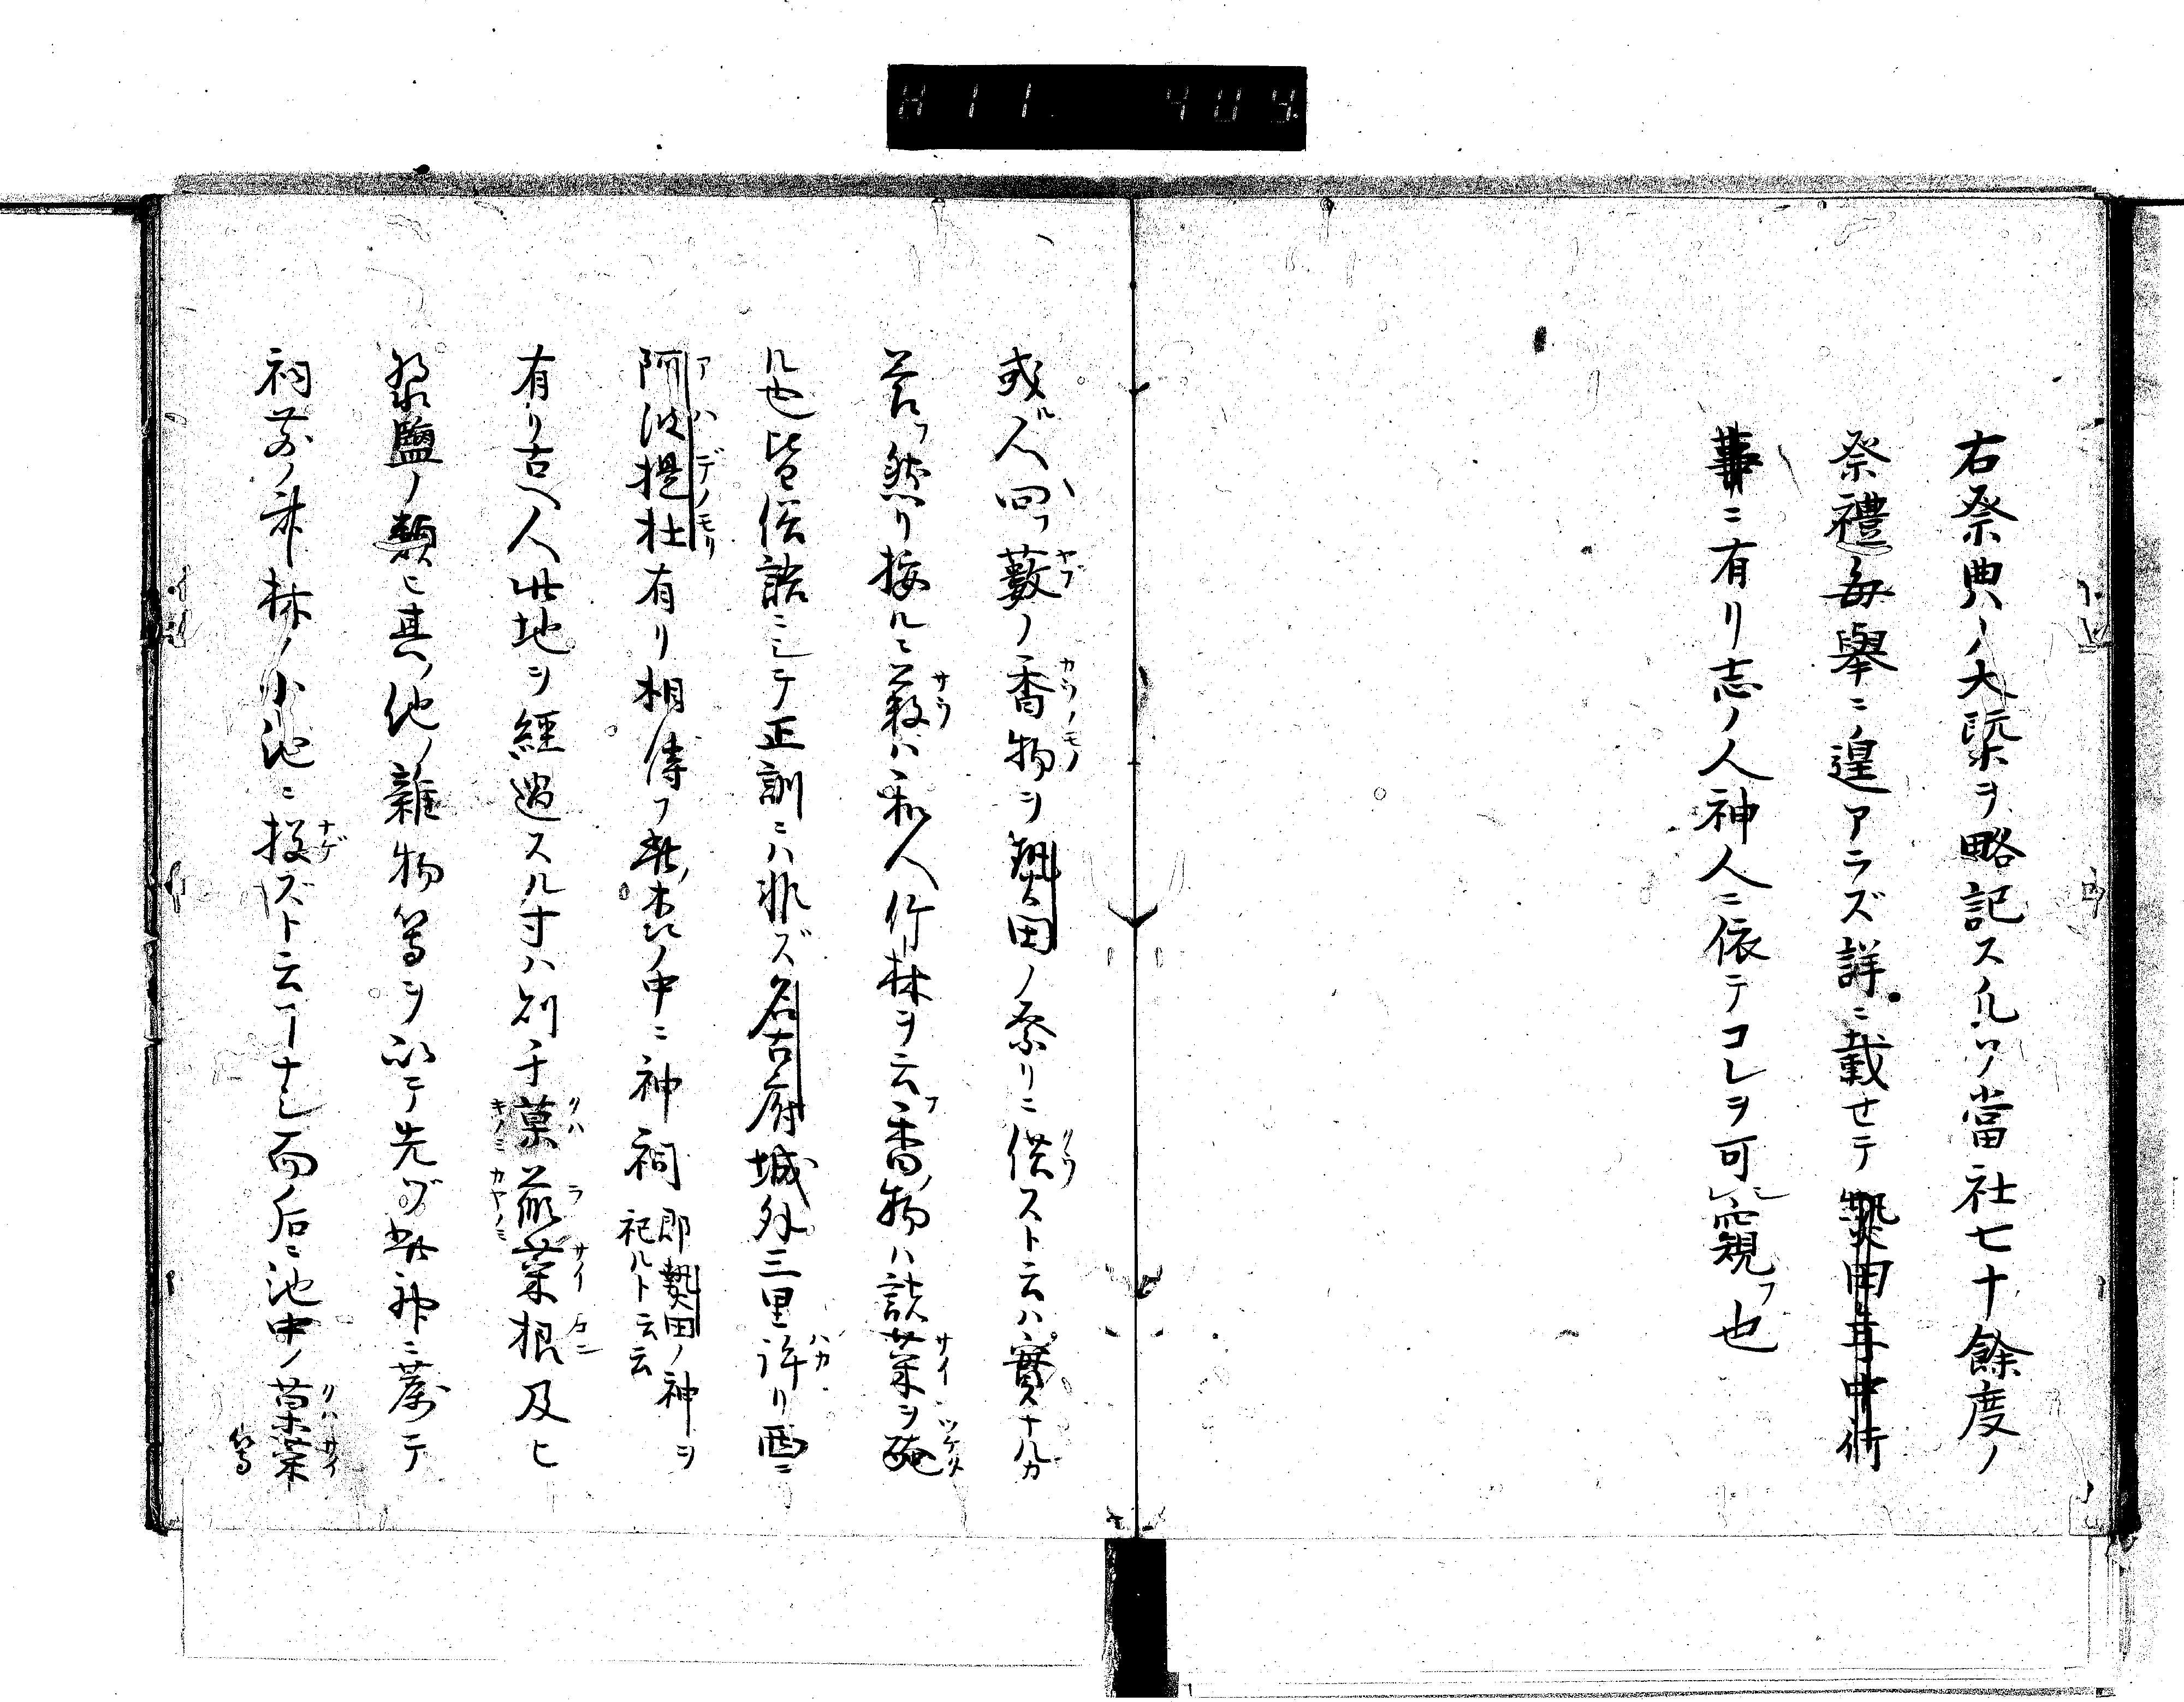 右祭典ノ大槩ヲ略記スル而已當社七十餘度ノ
祭禮毎擧ニ遑アラズ詳ニ載セテ熱田年中行
事ニ有リ志ノ人神人ニ依テコレヲ可窺フ也
或ル人問フ藪ノ香物ヲ熱田ノ祭リニ供スト云ハ實ナルカ
答フ然リ按ルニ藪ハ和人竹林ヲ云フ香ノ物ハ諸菜ヲ醃
ル也皆俗語ニシテ正訓ニハ非ズ名古府城外三里許リ西ニ
阿波提杜有リ相傳フ此森ノ中ニ神祠即熱田ノ神ヲ祀ルト云云
有リ古ヘ人此地ヲ經過スル寸ハ則千菓蓏菜根及ヒ
鹽ノ類ヒ其ノ他ノ雜物等ヲ以テ先ヅ此神ニ薦テ
祠前ノ林ノ小池ニ投ズト云フナシ而后ニ池中ノ菓菜等